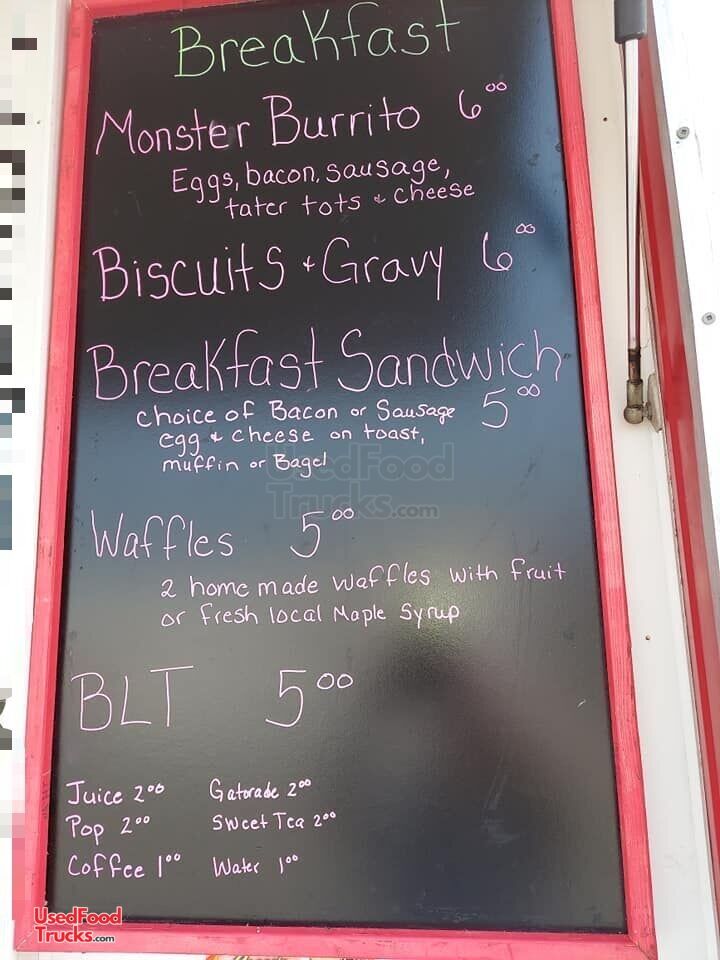 Breakfast
Monster Burrito 6⁰⁰
Eggs, bacon, sausage,
tater tots & cheese
Biscuits & Gravy 6⁰⁰
Breakfast Sandwich
choice of Bacon or Sausage 5⁰⁰
egg & cheese on toast,
muffin or Bagel
UsedFood
Trucks.com
Waffles 5⁰⁰
2 home made waffles with fruit
or fresh local Maple Syrup
BLT 5⁰⁰
Juice 2⁰⁰ Gatorade 2⁰⁰
Pop 2⁰⁰ Sweet Tea 2⁰⁰
Coffee 1⁰⁰ Water 1⁰⁰
UsedFood
Trucks.com